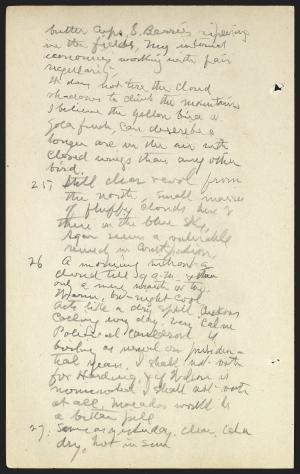 butter cups, S. Berries ripening
in the fields, My internal
economies working with fair
regularity.
It does not tire the cloud
shadows to climb the mountains
I believe the yellow bird or
goldfinch can describe a
longer arc in the air with
closed wings than any other
bird.
25, Still clear cool from
the north, small masses
of fluffy clouds here &
there in the blue sky,
again
26 A morning without a
cloud till 9 a.m. & then
only a mere
Warm, but night cool
Acts like a dry spell.
every day, very calm
Political cauldron is
boiling as usual on presiden-
tial year, I shall not vote
for Harding, & if Wilson is
nominated I shall not vote
at all. would be
a bitter pill
27. Same as yesterday, clear,
dry, hot in sun